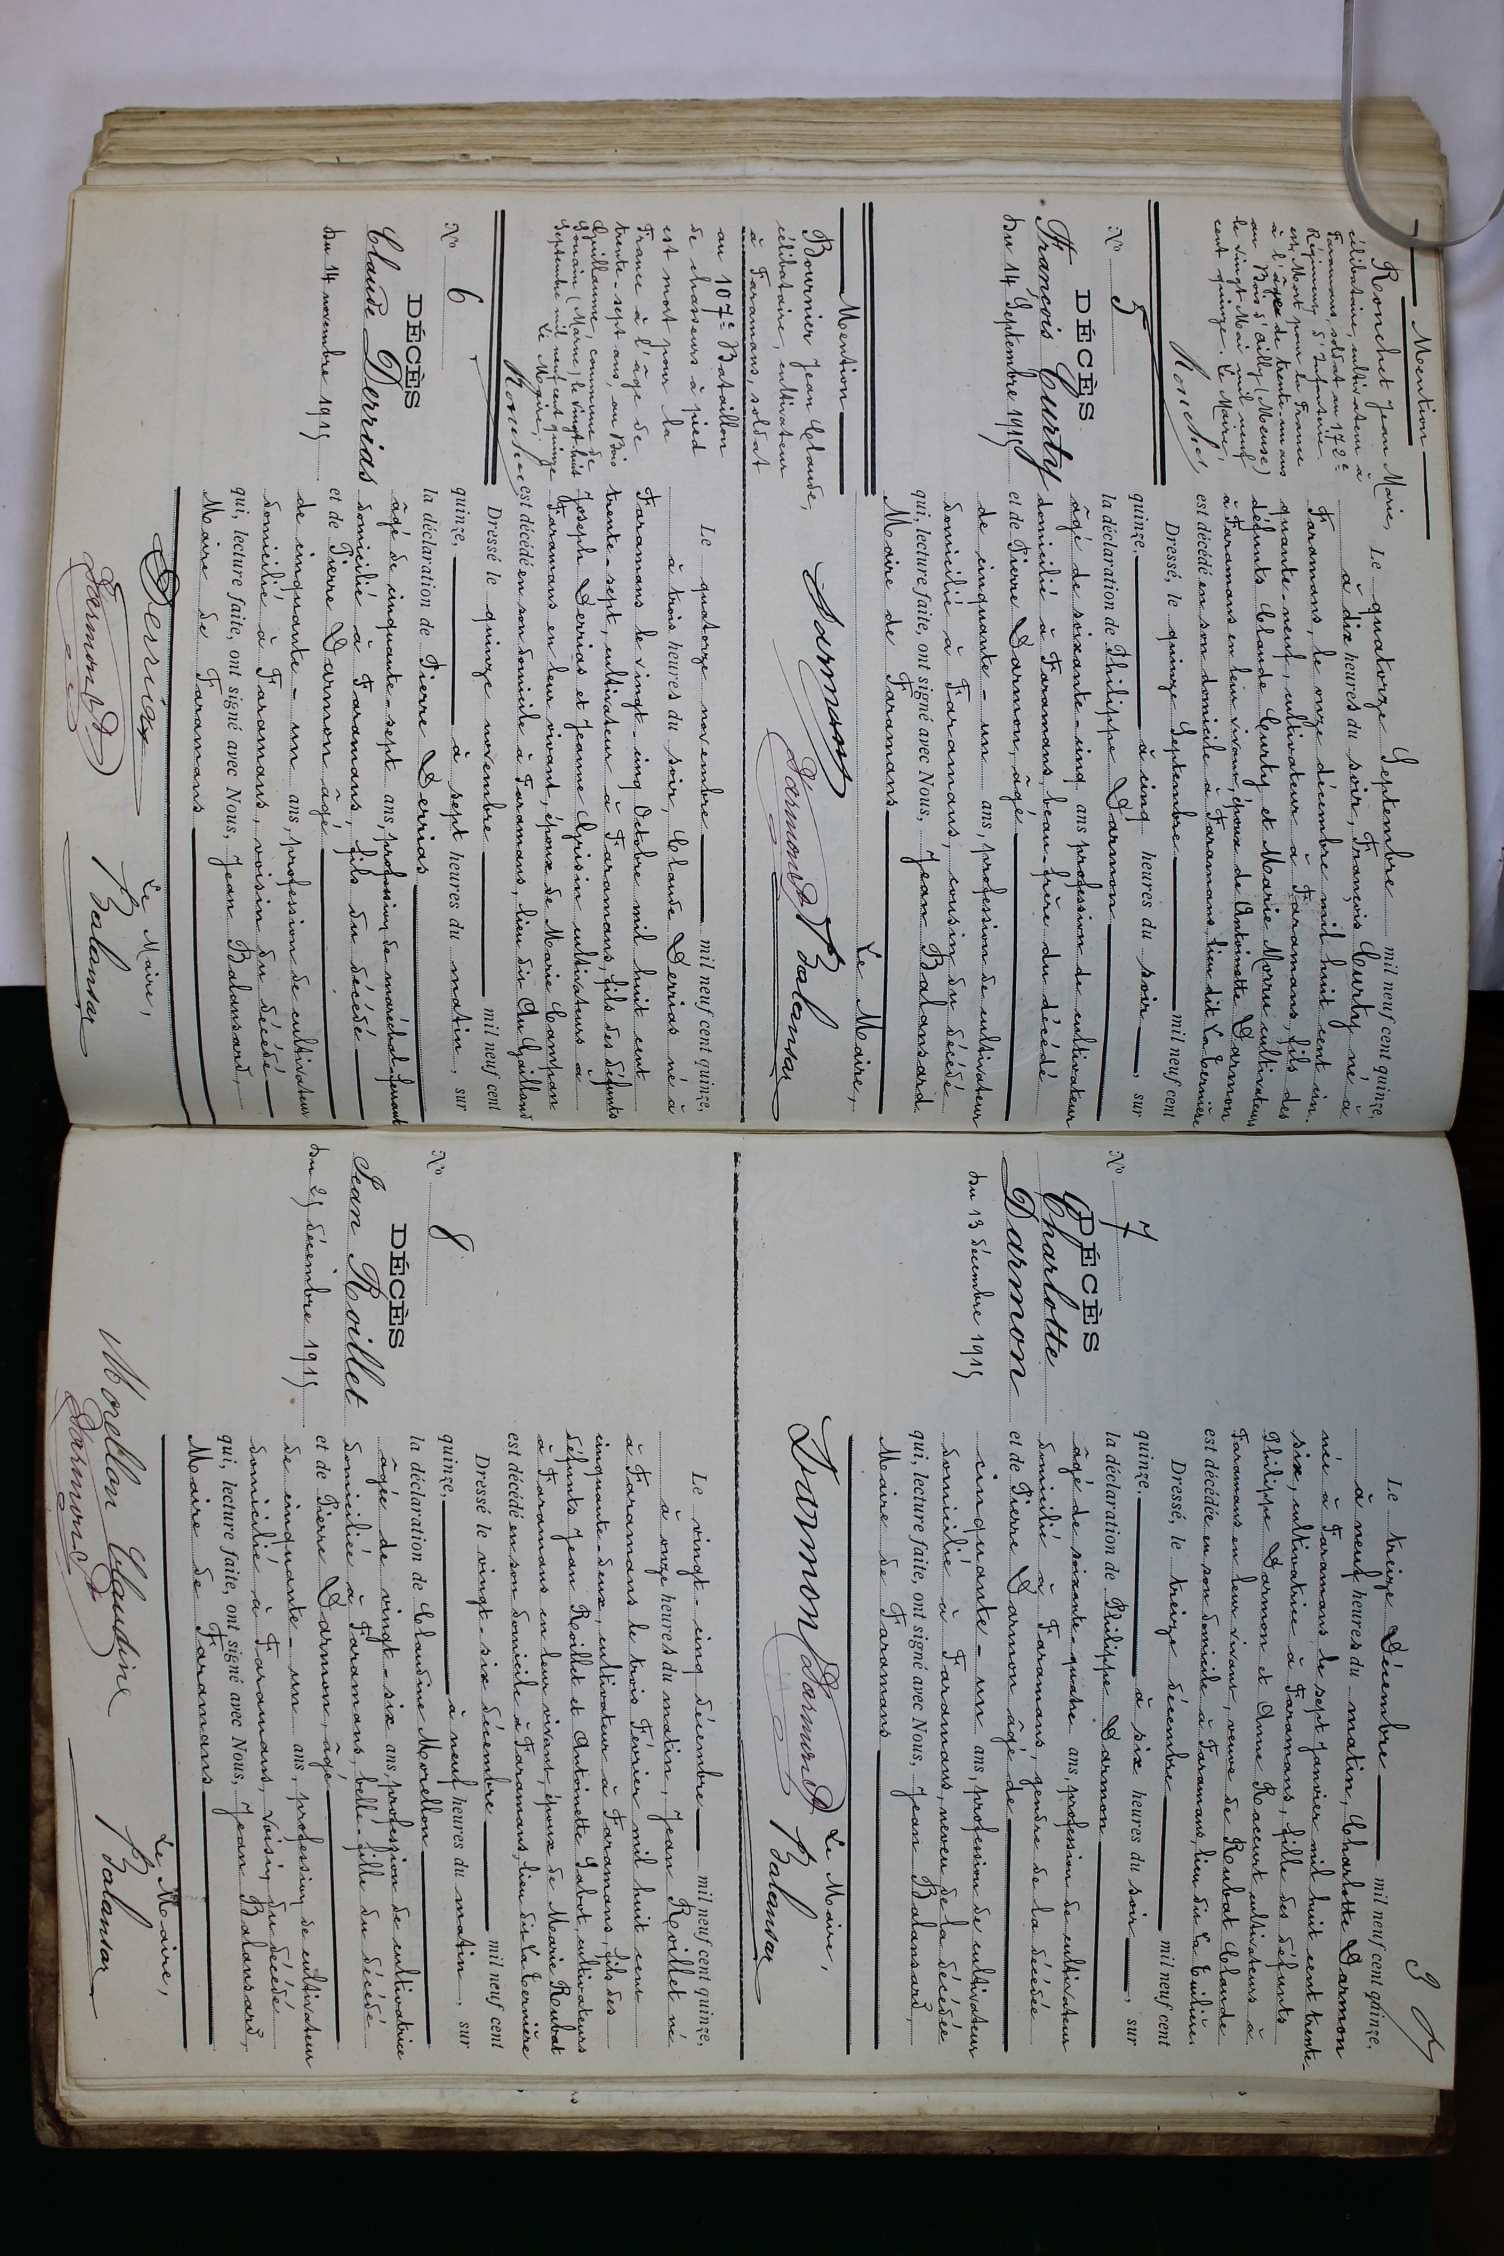 Mention
Ronchet Jean Marie,
célibataire, cultivateur à
Faramans, soldat au 172e
Régiment d'Infanterie
est mort pour la France
à l'âge de trente-un ans
au Bois d'Ailly (Meuse)
le vingt Mai mil neuf
cent quinze. Le Maire,
No 5
DÉCÈS
François Curty
du 14 Septembre 1915
Le quatorze Septembre mil neuf cent quinze,
à dix heures du soir, François Curty né à
Faramans, le onze décembre mil huit cent cin-
quante-neuf, cultivateur à Faramans, fils des
défunts Claude Curty et Marie Morru cultivateurs
à Faramans en leur vivant, époux de Antoinette Darmon
est décédé en son domicile à Faramans, lieu dit La Cernière
Dressé, le quinze Septembre mil neuf cent
quinze, à cinq heures du soir, sur
la déclaration de Philippe Darmon
âgé de soixante-cinq ans profession de cultivateur
domicilié à Faramans, beau-frère du décédé
et de Pierre Darmon, âgé
de cinquante-un ans, profession de cultivateur
domicilié à Faramans, cousin du décédé
qui, lecture faite, ont signé avec Nous, Jean Balansard
Maire de Faramans
Le Maire,
Darmon Darmon P Balansar
Mention
Bournier Jean Claude,
célibataire, cultivateur
à Faramans, soldat
au 107e Bataillon
de chasseurs à pied
est mort pour la
France à l'âge de
trente-sept ans, au Bois
Guillaume, commune de
Souain (Marne) le vingt-huit
Septembre mil neuf cent quinze
Le Maire,
No 6
DÉCÈS
Claude Derrias
du 14 novembre 1915
Le quatorze novembre mil neuf cent quinze,
à trois heures du soir, Claude Derrias né à
Faramans le vingt-cinq Octobre mil huit cent
trente-sept, cultivateur à Faramans, fils des défunts
Joseph Derrias et Jeanne Grisin cultivateurs à
Faramans en leur vivant, époux de Marie Campan
est décédé en son domicile à Faramans, lieu dit Au Gailland
Dressé le quinze novembre mil neuf cent
quinze, à sept heures du matin, sur
la déclaration de Pierre Derrias
âgé de cinquante-sept ans, profession de maréchal-ferrant
domicilié à Faramans, fils du décédé
et de Pierre Darmon âgé
de cinquante-un ans, profession de cultivateur
domicilié à Faramans, voisin du décédé
qui, lecture faite, ont signé avec Nous, Jean Balansard,
Maire de Faramans
Le Maire,
Derrias Darmon P Balansar
3
No 7
DÉCÈS
Charlotte
Darmon
du 13 décembre 1915
Le treize Décembre mil neuf cent quinze,
à neuf heures du matin, Charlotte Darmon
née à Faramans le sept Janvier mil huit cent trente-
six, cultivatrice à Faramans, fille des défunts
Philippe Darmon et Anne Raccurt cultivateurs à
Faramans en leur vivant, veuve de Rubat Claude
est décédée en son domicile à Faramans, lieu dit La Tuilière.
Dressé, le treize décembre mil neuf cent
quinze, à six heures du soir, sur
la déclaration de Philippe Darmon
âgé de soixante-quatre ans, profession de cultivateur
domicilié à Faramans, gendre de la décédée
et de Pierre Darmon âgé de
cinquante-un ans, profession de cultivateur
domicilié à Faramans, neveu de la décédée
qui, lecture faite, ont signé avec Nous, Jean Balansard,
Maire de Faramans
Le Maire,
Darmon Darmon P Balansar
No 8
DÉCÈS
Jean Roillet
du 25 décembre 1915
Le vingt-cinq décembre mil neuf cent quinze,
à onze heures du matin, Jean Roillet né
à Faramans le trois Février mil huit cent
cinquante-deux, cultivateur à Faramans, fils des
défunts Jean Roillet et Antoinette Jabot, cultivateurs
à Faramans en leur vivant, époux de Marie Rubat
est décédé en son domicile à Faramans, lieu dit La Cernière
Dressé le vingt-six décembre mil neuf cent
quinze, à neuf heures du matin, sur
la déclaration de Claudine Morellon
âgée de vingt-six ans, profession de cultivatrice
domiciliée à Faramans, belle-fille du décédé
et de Pierre Darmon, âgé
de cinquante-un ans, profession de cultivateur
domicilié à Faramans, voisin du décédé
qui, lecture faite, ont signé avec Nous, Jean Balansard,
Maire de Faramans
Le Maire,
Morellon Claudine
Darmon P Balansar